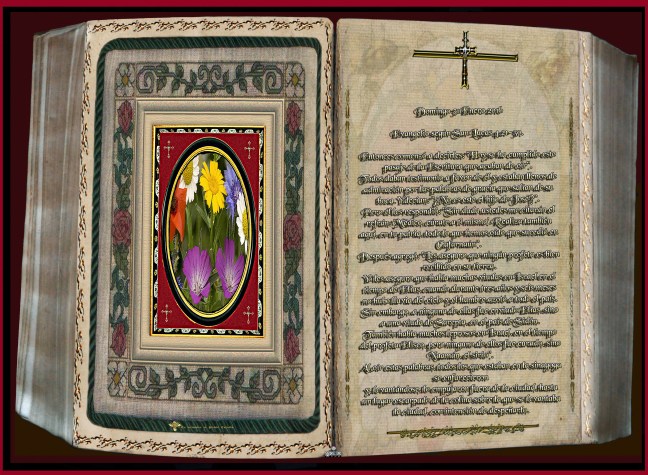 Domingo 31 Enero 2016
Evangelio según San Lucas 4,21-30.
Entonces comenzó a decirles: "Hoy se ha cumplido este
pasaje de la Escritura que acaban de oír".
Todos daban testimonio a favor de él y estaban llenos de
admiración por las palabras de gracia que salían de su
boca. Y decían: "¿No es este el hijo de José?".
Pero él les respondió: "Sin duda ustedes me citarán el
refrán: 'Médico, cúrate a ti mismo'. Realiza también
aquí, en tu patria, todo lo que hemos oído que sucedió en
Cafarnaún".
Después agregó: "Les aseguro que ningún profeta es bien
recibido en su tierra.
Yo les aseguro que había muchas viudas en Israel en el
tiempo de Elías, cuando durante tres años y seis meses
no hubo lluvia del cielo y el hambre azotó a todo el país.
Sin embargo, a ninguna de ellas fue enviado Elías, sino
a una viuda de Sarepta, en el país de Sidón.
También había muchos leprosos en Israel, en el tiempo
del profeta Eliseo, pero ninguno de ellos fue curado, sino
Naamán, el sirio".
Al oír estas palabras, todos los que estaban en la sinagoga
se enfurecieron
y, levantándose, lo empujaron fuera de la ciudad, hasta
un lugar escarpado de la colina sobre la que se levantaba
la ciudad, con intención de despeñarlo.